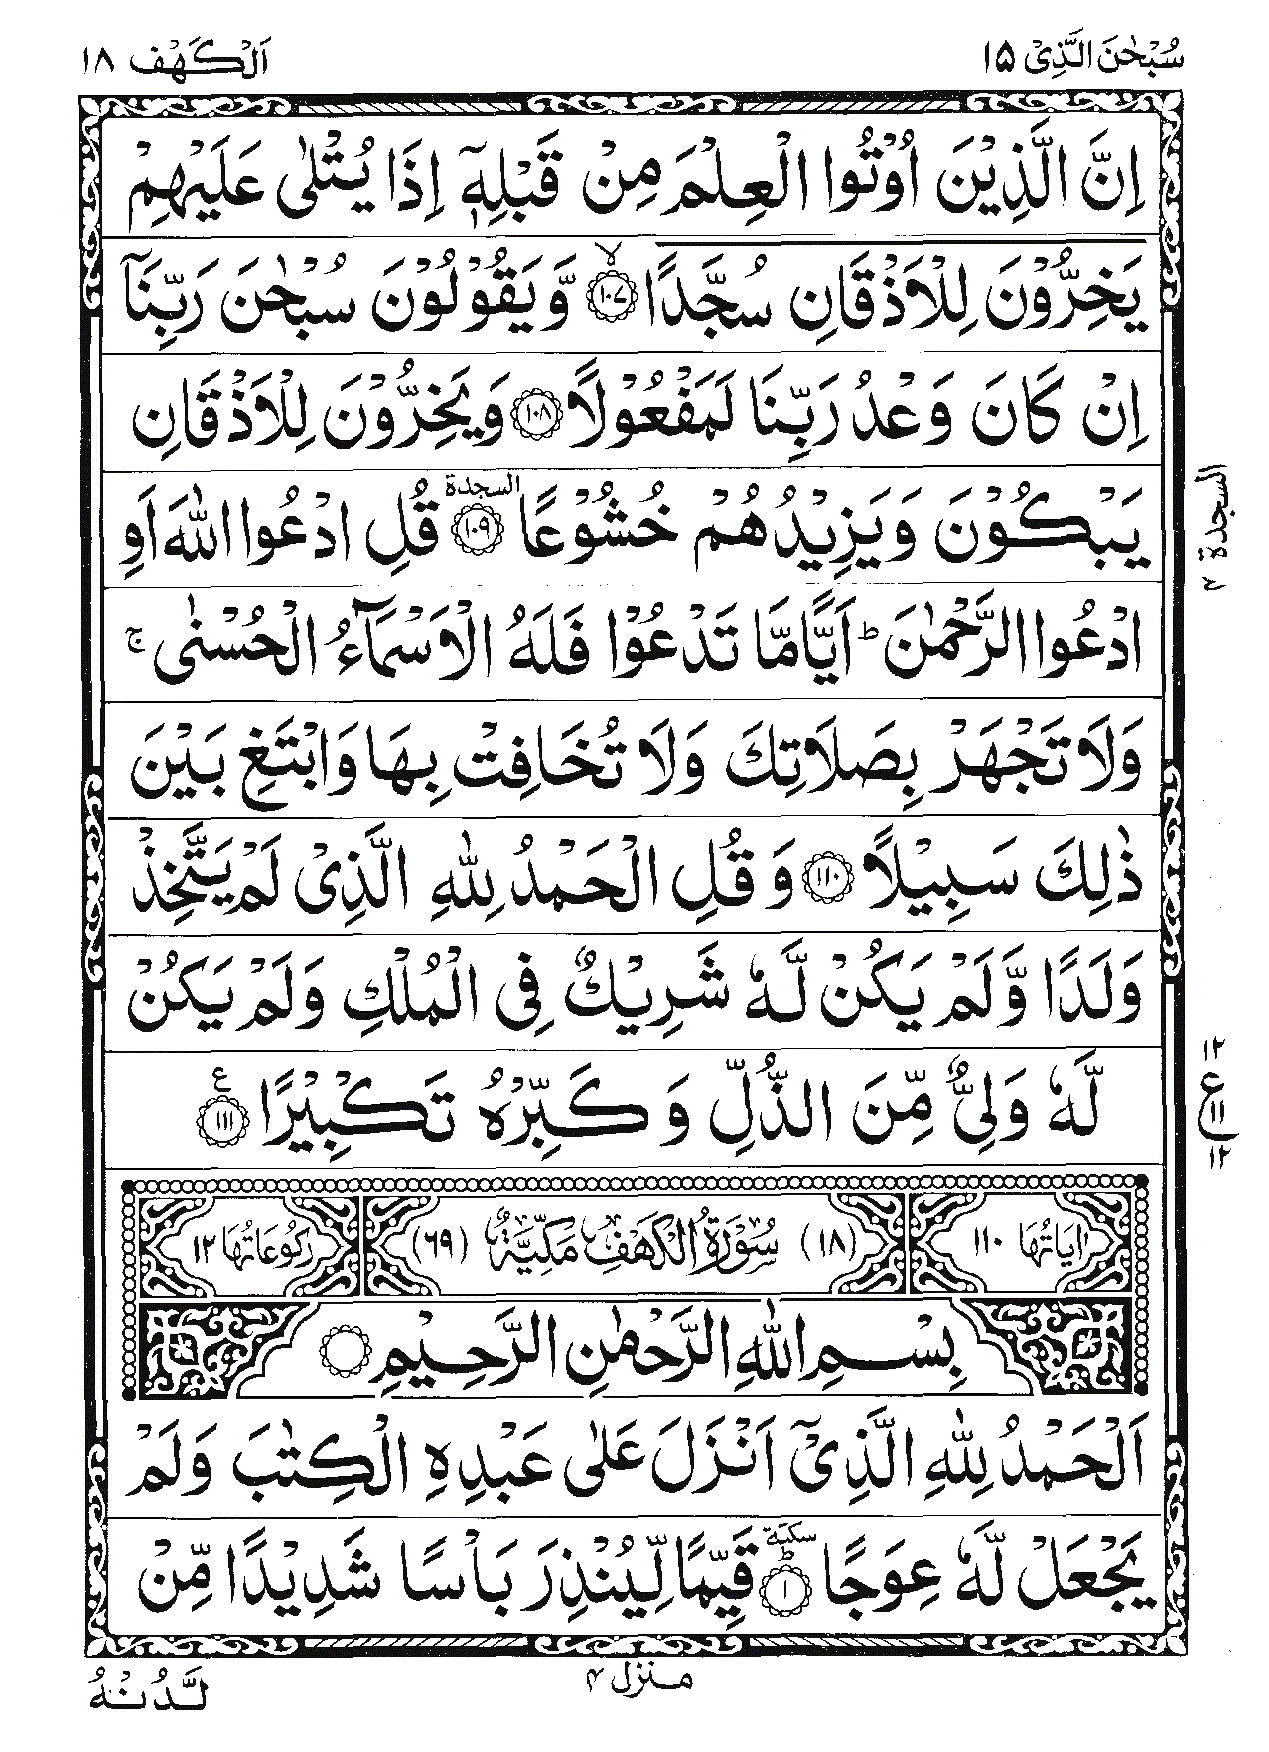 سُبْحٰنَ الَّذِیْ ١٥
اَلْكَهْف ١٨
اِنَّ الَّذِيْنَ اُوْتُوا الْعِلْمَ مِنْ قَبْلِهٖٓ اِذَا يُتْلٰى عَلَيْهِمْ
يَخِرُّوْنَ لِلْاَذْقَانِ سُجَّدًا ۙ ١٠٧ وَّيَقُوْلُوْنَ سُبْحٰنَ رَبِّنَآ
اِنْ كَانَ وَعْدُ رَبِّنَا لَمَفْعُوْلًا ١٠٨ وَيَخِرُّوْنَ لِلْاَذْقَانِ
يَبْكُوْنَ وَيَزِيْدُهُمْ خُشُوْعًا السجدة ١٠٩ قُلِ ادْعُوا اللّٰهَ اَوِ
ادْعُوا الرَّحْمٰنَ ؕ اَيًّا مَّا تَدْعُوْا فَلَهُ الْاَسْمَآءُ الْحُسْنٰى ۚ
وَلَا تَجْهَرْ بِصَلَاتِكَ وَلَا تُخَافِتْ بِهَا وَابْتَغِ بَيْنَ
ذٰلِكَ سَبِيْلًا ١١٠ وَقُلِ الْحَمْدُ لِلّٰهِ الَّذِيْ لَمْ يَتَّخِذْ
وَلَدًا وَّلَمْ يَكُنْ لَّهٗ شَرِيْكٌ فِي الْمُلْكِ وَلَمْ يَكُنْ
لَّهٗ وَلِيٌّ مِّنَ الذُّلِّ وَكَبِّرْهُ تَكْبِيْرًا ع ١١١
السجدة ٤
١٢
ع
١١
١٢
اٰيَاتُهَا ١١٠ (١٨) سُوْرَةُ الْكَهْفِ مَكِّيَّةٌ (٦٩) رُكُوْعَاتُهَا ١٢
بِسْمِ اللّٰهِ الرَّحْمٰنِ الرَّحِيْمِ
اَلْحَمْدُ لِلّٰهِ الَّذِيْٓ اَنْزَلَ عَلٰى عَبْدِهِ الْكِتٰبَ وَلَمْ
يَجْعَلْ لَّهٗ عِوَجًا ؕ سكته ١ قَيِّمًا لِّيُنْذِرَ بَاْسًا شَدِيْدًا مِّنْ
منزل ٤
لَّدُنْهُ